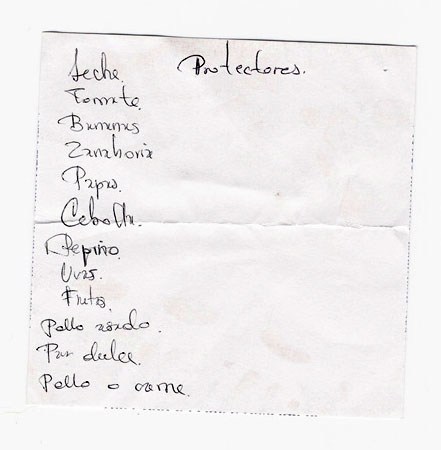 Leche. Protectores.
Tomate.
Bananas
Zanahoria
Papas.
Cebolla.
Pepino.
Uvas.
Frutas.
Pollo asado.
Pan dulce.
Pollo o carne.